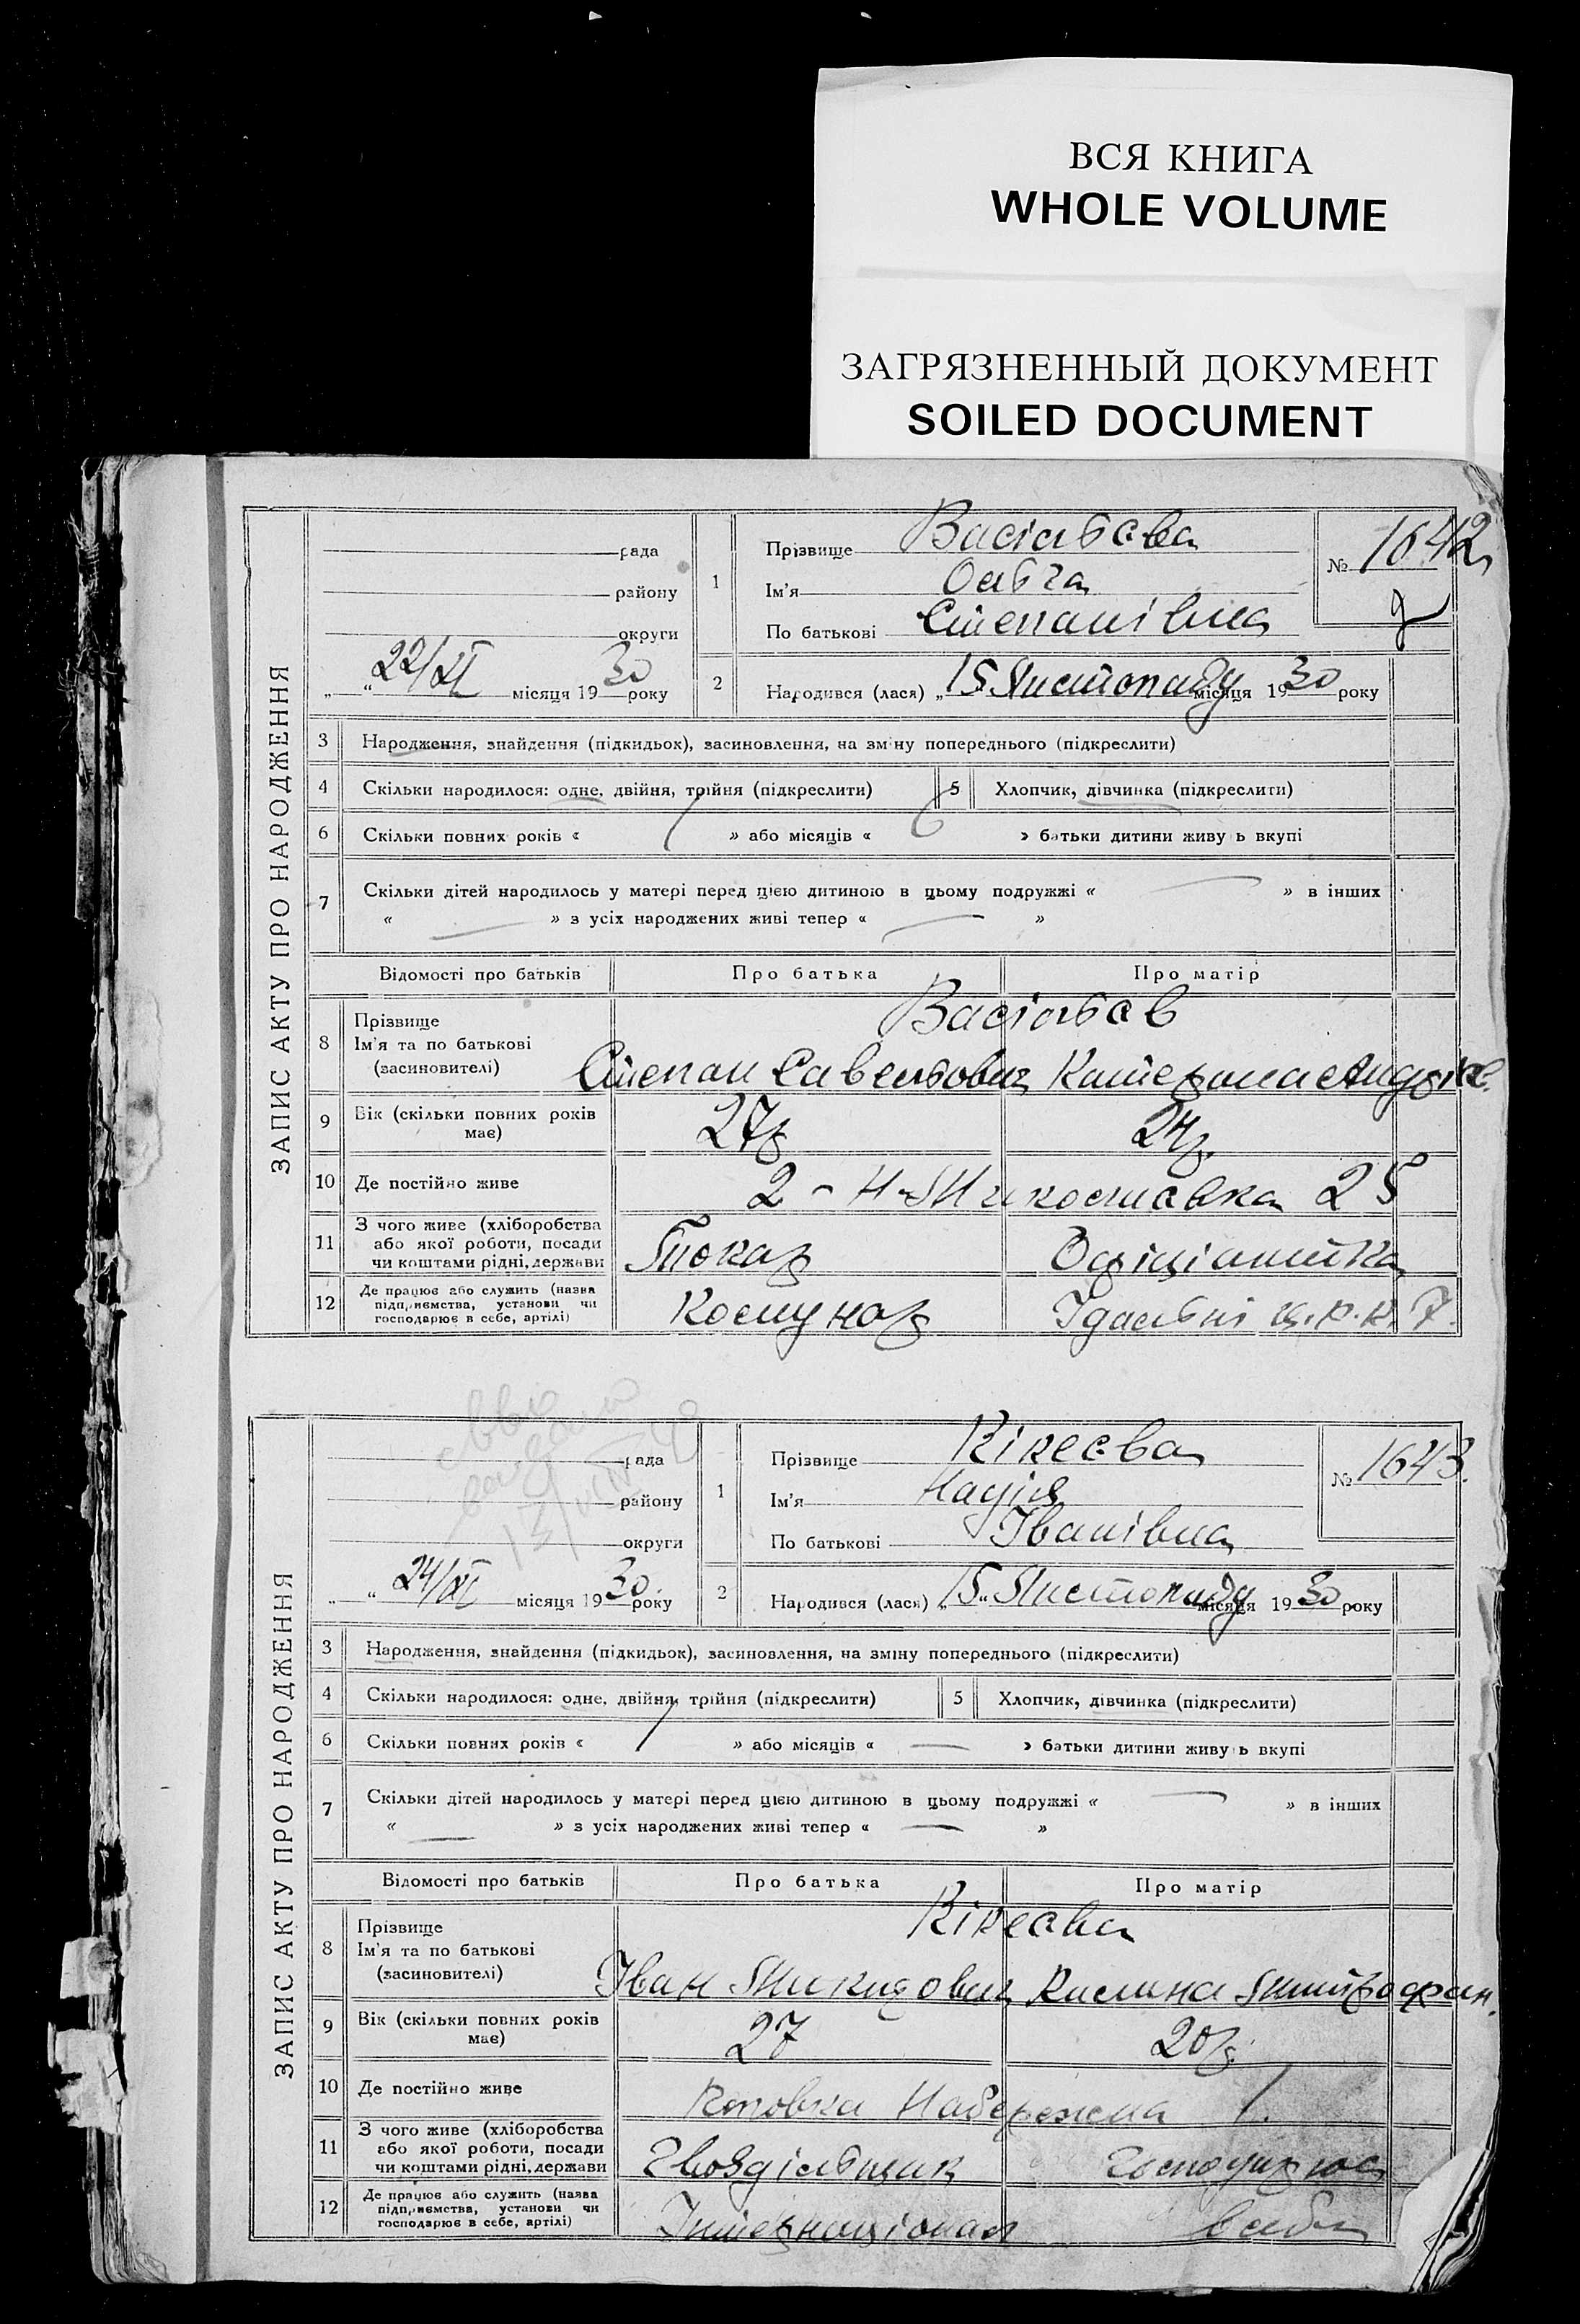 ВСЯ КНИГА
WHOLE VOLUME
ЗАГРЯЗНЕННЫЙ ДОКУМЕНТ
SOILED DOCUMENT
ЗАПИС АКТУ ПРО НАРОДЖЕННЯ
рада
району
округи
„ “ 22/XI місяця 1930 року
1
Прізвище Васільєва
Ім'я Ольга
По батькові Степанівна
№ 1642
2
Народився (лася) „15 Листопаду місяця 1930 року
3 Народження, знайдення (підкидьок), засиновлення, на зміну попереднього (підкреслити)
4 Скільки народилося: одне, двійня, трійня (підкреслити) 5 Хлопчик, дівчинка (підкреслити)
6 Скільки повних років « » або місяців « 6 » батьки дитини живуть вкупі
7 Скільки дітей народилось у матері перед цією дитиною в цьому подружжі « — » в інших
« — » з усіх народжених живі тепер « — »
Відомості про батьків Про батька Про матір
8 Прізвище Васільєв
Ім'я та по батькові
(засиновителі) Степан Савельович Катерина Андріє.
9 Вік (скільки повних років має) 27р 24р.
10 Де постійно живе 2 - Н-Миколаївка 25
11 З чого живе (хліборобства або якої роботи, посади чи коштами рідні, держави Токар Офіціантка
12 Де працює або служить (назва підприємства, установи чи господарює в себе, артілі) Комунар Їдальні ц.р.к. 7.
ЗАПИС АКТУ ПРО НАРОДЖЕННЯ
рада
району
округи
„ “ 24/XI місяця 1930. року
1
Прізвище Кікєєва
Ім'я Надія
По батькові Іванівна
№ 1643.
2
Народився (лася) „15“ Листопаду місяця 1930 року
3 Народження, знайдення (підкидьок), засиновлення, на зміну попереднього (підкреслити)
4 Скільки народилося: одне, двійня, трійня (підкреслити) 5 Хлопчик, дівчинка (підкреслити)
6 Скільки повних років « 1 » або місяців « — » батьки дитини живуть вкупі
7 Скільки дітей народилось у матері перед цією дитиною в цьому подружжі « — » в інших
« — » з усіх народжених живі тепер « — »
Відомості про батьків Про батька Про матір
8 Прізвище Кікєєва
Ім'я та по батькові
(засиновителі) Іван Микидович Килина Митрофан.
9 Вік (скільки повних років має) 27 20р.
10 Де постійно живе Набережна 1.
11 З чого живе (хліборобства або якої роботи, посади чи коштами рідні, держави Гвоздільщик Господарює
12 Де працює або служить (назва підприємства, установи чи господарює в себе, артілі) Інтернаціонал в себе